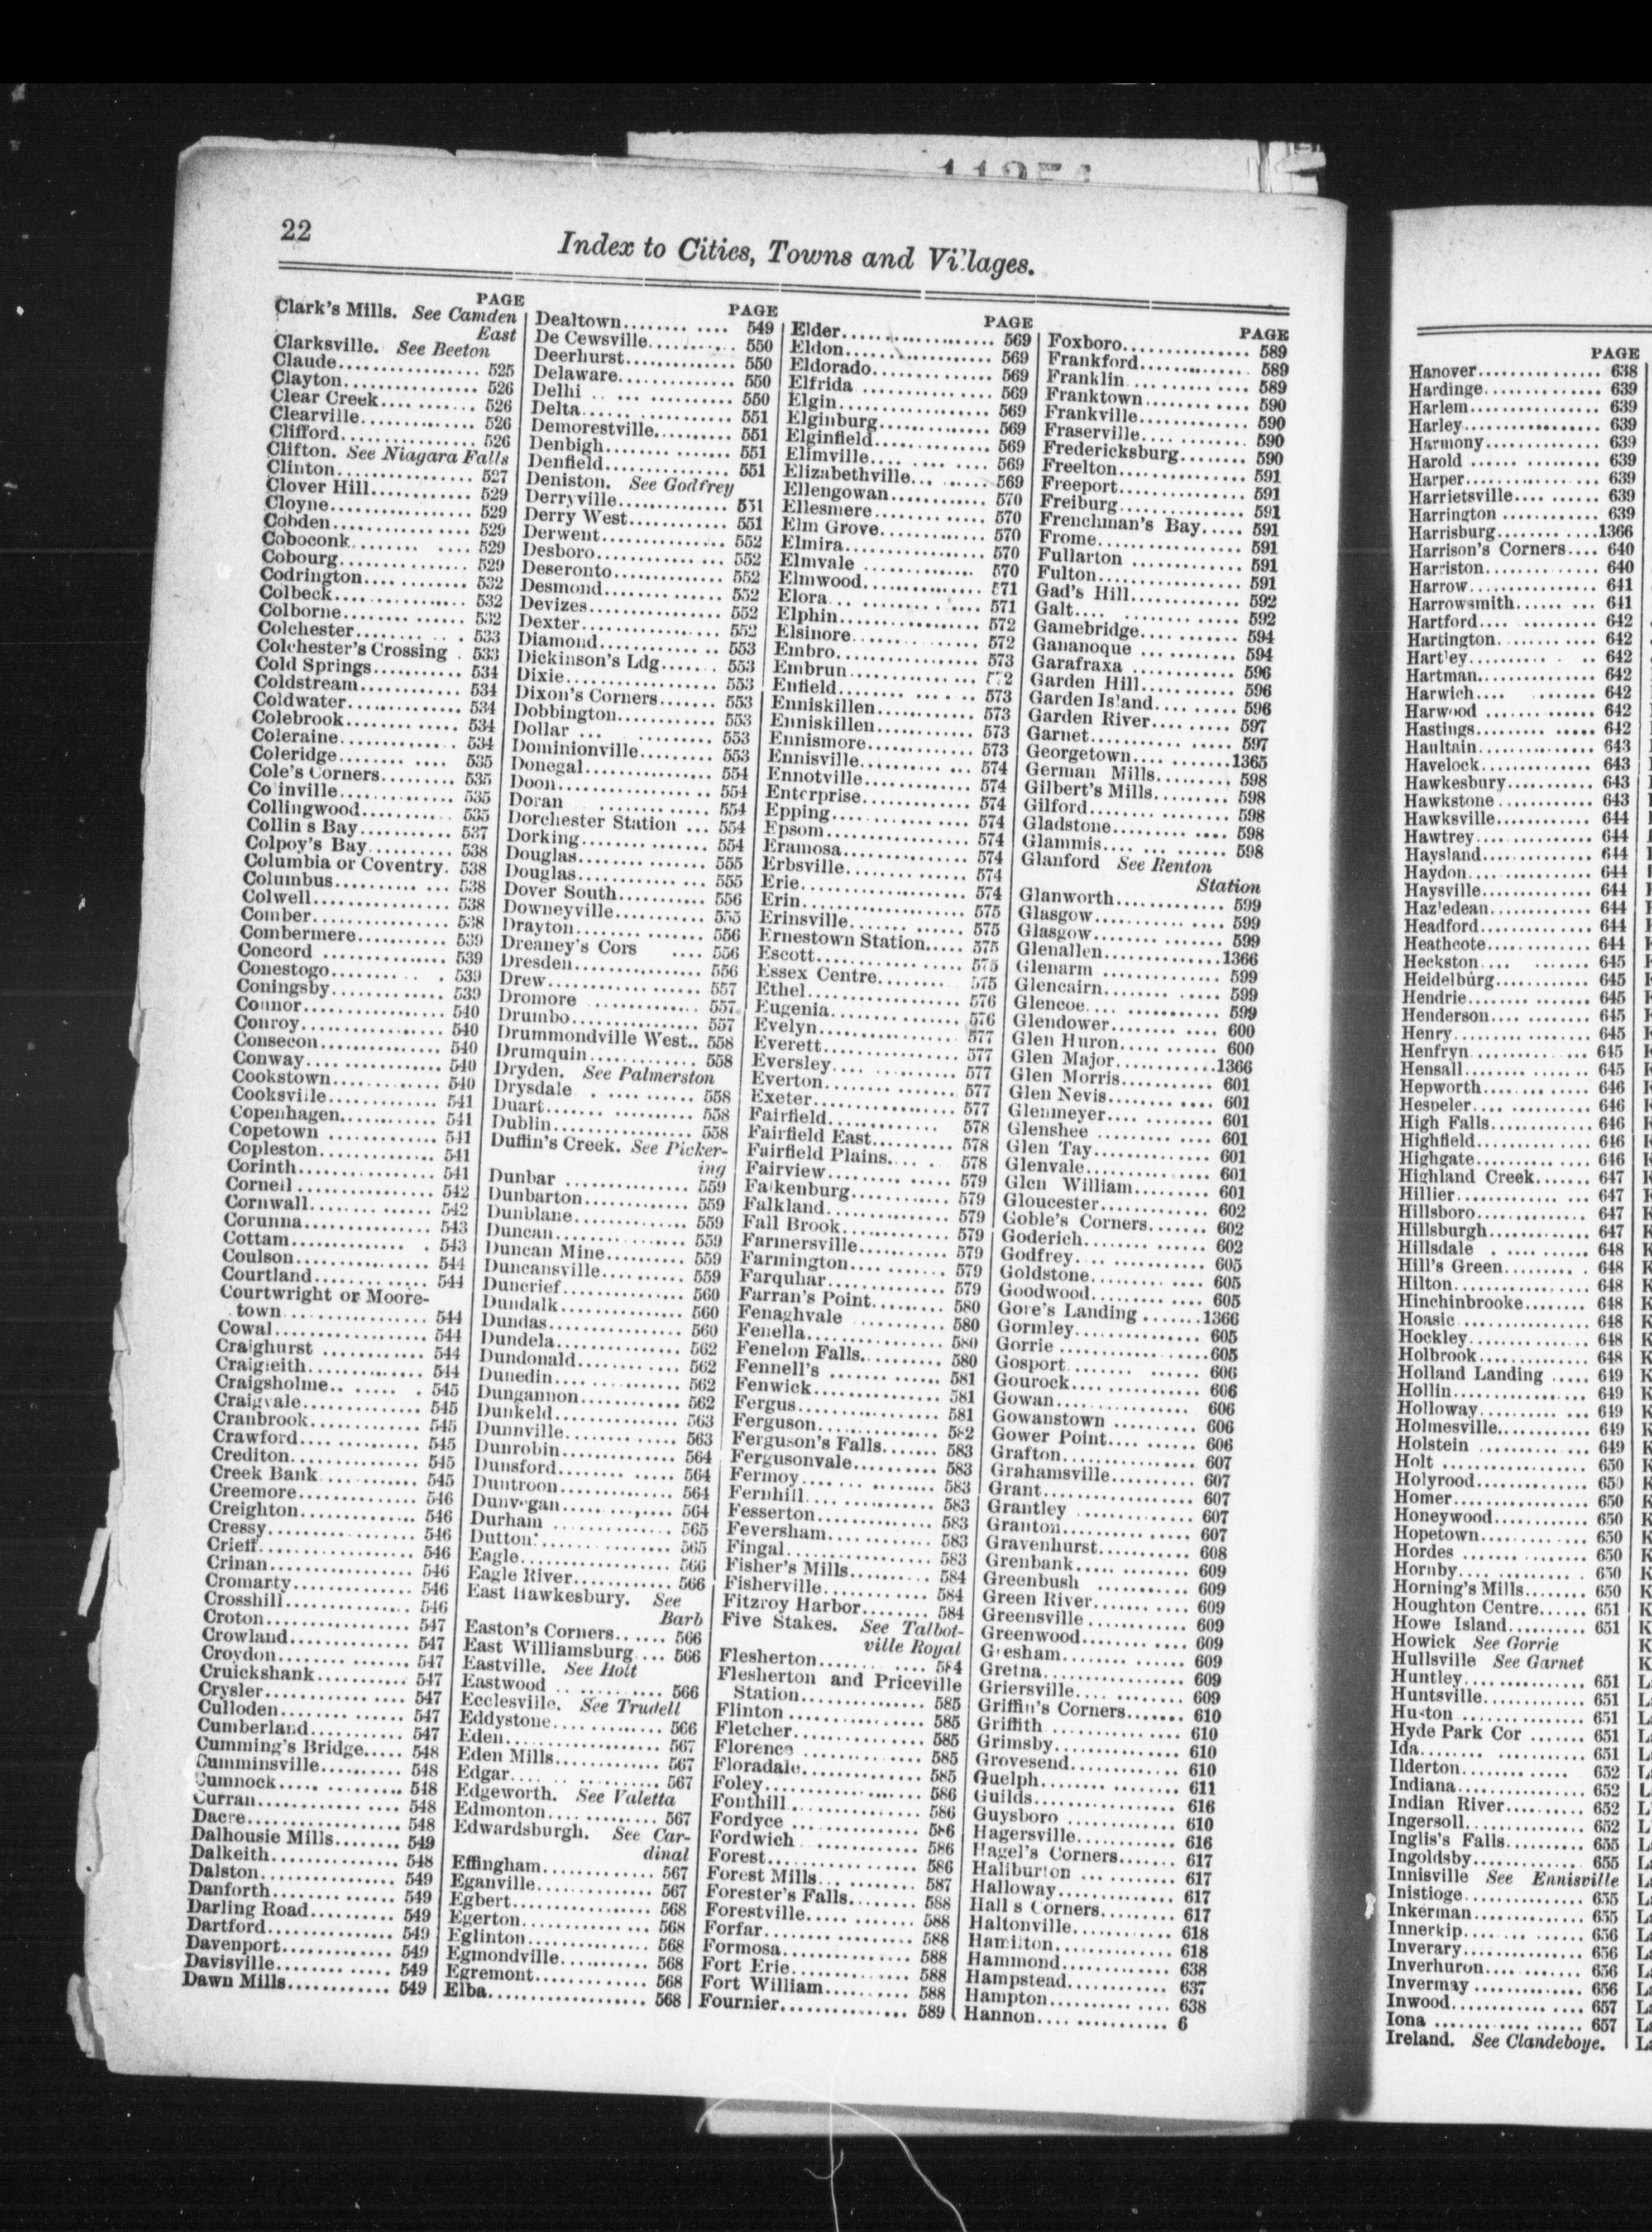 22
Index to Cities, Towns and Villages.
PAGE
Clark's Mills. See Camden
East
Clarksville. See Beeton
Claude........ 525
Clayton........ 526
Clear Creek........ 526
Clearville........ 526
Clifford........ 526
Clifton. See Niagara Falls
Clinton........ 527
Clover Hill........ 529
Cloyne........ 529
Cobden........ 529
Coboconk........ 529
Cobourg........ 529
Codrington........ 532
Colbeck........ 532
Colborne........ 532
Colchester........ 533
Colchester's Crossing . 533
Cold Springs........ 534
Coldstream........ 534
Coldwater........ 534
Colebrook........ 534
Coleraine........ 534
Coleridge........ 535
Cole's Corners........ 535
Co inville........ 535
Collingwood........ 535
Collin s Bay........ 537
Colpoy's Bay........ 538
Columbia or Coventry. 538
Columbus........ 538
Colwell........ 538
Comber........ 538
Combermere........ 539
Concord........ 539
Conestogo........ 539
Coningsby........ 539
Connor........ 540
Conroy........ 540
Consecon........ 540
Conway........ 540
Cookstown........ 540
Cooksville........ 541
Copenhagen........ 541
Copetown........ 541
Copleston........ 541
Corinth........ 541
Corneil........ 542
Cornwall........ 542
Corunna........ 543
Cottam........ 543
Coulson........ 544
Courtland........ 544
Courtwright or Moore-
town........ 544
Cowal........ 544
Craighurst........ 544
Craigleith........ 544
Craigsholme........ 545
Craigvale........ 545
Cranbrook........ 545
Crawford........ 545
Crediton........ 545
Creek Bank........ 545
Creemore........ 546
Creighton........ 546
Cressy........ 546
Crieff........ 546
Crinan........ 546
Cromarty........ 546
Crosshill........ 546
Croton........ 547
Crowland........ 547
Croydon........ 547
Cruickshank........ 547
Crysler........ 547
Culloden........ 547
Cumberland........ 547
Cumming's Bridge..... 548
Cumminsville........ 548
Cumnock........ 548
Curran........ 548
Dacre........ 548
Dalhousie Mills........ 549
Dalkeith........ 548
Dalston........ 549
Danforth........ 549
Darling Road........ 549
Dartford........ 549
Davenport........ 549
Davisville........ 549
Dawn Mills........ 549
PAGE
Dealtown........ 549
De Cewsville........ 550
Deerhurst........ 550
Delaware........ 550
Delhi........ 550
Delta........ 551
Demorestville........ 551
Denbigh........ 551
Denfield........ 551
Deniston. See Godfrey
Derryville........ 551
Derry West........ 551
Derwent........ 552
Desboro........ 552
Deseronto........ 552
Desmond........ 552
Devizes........ 552
Dexter........ 552
Diamond........ 553
Dickinson's Ldg........ 553
Dixie........ 553
Dixon's Corners........ 553
Dobbington........ 553
Dollar........ 553
Dominionville........ 553
Donegal........ 554
Doon........ 554
Doran........ 554
Dorchester Station ... 554
Dorking........ 554
Douglas........ 555
Douglas........ 555
Dover South........ 556
Downeyville........ 555
Drayton........ 556
Dreaney's Cors .... 556
Dresden........ 556
Drew........ 557
Dromore........ 557
Drumbo........ 557
Drummondville West.. 558
Drumquin........ 558
Dryden. See Palmerston
Drysdale........ 558
Duart........ 558
Dublin........ 558
Duffin's Creek. See Picker-
ing
Dunbar........ 559
Dunbarton........ 559
Dunblane........ 559
Duncan........ 559
Duncan Mine........ 559
Duncansville........ 559
Duncrief........ 560
Dundalk........ 560
Dundas........ 560
Dundela........ 562
Dundonald........ 562
Dunedin........ 562
Dungannon........ 562
Dunkeld........ 563
Dunnville........ 563
Dunrobin........ 564
Dunsford........ 564
Duntroon........ 564
Dunvegan........ 564
Durham........ 565
Dutton........ 565
Eagle........ 566
Eagle River........ 566
East Hawkesbury. See
Barb
Easton's Corners........ 566
East Williamsburg.... 566
Eastville. See Holt
Eastwood........ 566
Ecclesville. See Trudell
Eddystone........ 566
Eden........ 567
Eden Mills........ 567
Edgar........ 567
Edgeworth. See Valetta
Edmonton........ 567
Edwardsburgh. See Car-
dinal
Effingham........ 567
Eganville........ 567
Egbert........ 568
Egerton........ 568
Eglinton........ 568
Egmondville........ 568
Egremont........ 568
Elba........ 568
PAGE
Elder........ 569
Eldon........ 569
Eldorado........ 569
Elfrida........ 569
Elgin........ 569
Elginburg........ 569
Elginfield........ 569
Elimville........ 569
Elizabethville........ 569
Ellengowan........ 570
Ellesmere........ 570
Elm Grove........ 570
Elmira........ 570
Elmvale........ 570
Elmwood........ 571
Elora........ 571
Elphin........ 572
Elsinore........ 572
Embro........ 573
Embrun........ 572
Enfield........ 573
Enniskillen........ 573
Enniskillen........ 573
Ennismore........ 573
Ennisville........ 574
Ennotville........ 574
Enterprise........ 574
Epping........ 574
Epsom........ 574
Eramosa........ 574
Erbsville........ 574
Erie........ 574
Erin........ 575
Erinsville........ 575
Ernestown Station..... 575
Escott........ 575
Essex Centre........ 575
Ethel........ 576
Eugenia........ 576
Evelyn........ 577
Everett........ 577
Eversley........ 577
Everton........ 577
Exeter........ 577
Fairfield........ 578
Fairfield East........ 578
Fairfield Plains........ 578
Fairview........ 579
Falkenburg........ 579
Falkland........ 579
Fall Brook........ 579
Farmersville........ 579
Farmington........ 579
Farquhar........ 579
Farran's Point........ 580
Fenaghvale........ 580
Fenella........ 580
Fenelon Falls........ 580
Fennell's........ 581
Fenwick........ 581
Fergus........ 581
Ferguson........ 582
Ferguson's Falls....... 583
Fergusonvale........ 583
Fermoy........ 583
Fernhill........ 583
Fesserton........ 583
Feversham........ 583
Fingal........ 583
Fisher's Mills........ 584
Fisherville........ 584
Fitzroy Harbor........ 584
Five Stakes. See Talbot-
ville Royal
Flesherton........ 584
Flesherton and Priceville
Station........ 585
Flinton........ 585
Fletcher........ 585
Florence........ 585
Floradale........ 585
Foley........ 586
Fonthill........ 586
Fordyce........ 586
Fordwich........ 586
Forest........ 586
Forest Mills........ 587
Forester's Falls........ 588
Forestville........ 588
Forfar........ 588
Formosa........ 588
Fort Erie........ 588
Fort William........ 588
Fournier........ 589
PAGE
Foxboro........ 589
Frankford........ 589
Franklin........ 589
Franktown........ 590
Frankville........ 590
Fraserville........ 590
Fredericksburg........ 590
Freelton........ 591
Freeport........ 591
Freiburg........ 591
Frenchman's Bay..... 591
Frome........ 591
Fullarton........ 591
Fulton........ 591
Gad's Hill........ 592
Galt........ 592
Gamebridge........ 594
Gananoque........ 594
Garafraxa........ 596
Garden Hill........ 596
Garden Island........ 596
Garden River........ 597
Garnet........ 597
Georgetown........1365
German Mills........ 598
Gilbert's Mills........ 598
Gilford........ 598
Gladstone........ 598
Glammis........ 598
Glanford See Renton
Station
Glanworth........ 599
Glasgow........ 599
Glasgow........ 599
Glenallen........1366
Glenarm........ 599
Glencairn........ 599
Glencoe........ 599
Glendower........ 600
Glen Huron........ 600
Glen Major........1366
Glen Morris........ 601
Glen Nevis........ 601
Glenmeyer........ 601
Glenshee........ 601
Glen Tay........ 601
Glenvale........ 601
Glen William........ 601
Gloucester........ 602
Goble's Corners....... 602
Goderich........ 602
Godfrey........ 605
Goldstone........ 605
Goodwood........ 605
Gore's Landing.......1366
Gormley........ 605
Gorrie........ 605
Gosport........ 606
Gourock........ 606
Gowan........ 606
Gowanstown........ 606
Gower Point........ 606
Grafton........ 607
Grahamsville........ 607
Grant........ 607
Grantley........ 607
Granton........ 607
Gravenhurst........ 608
Grenbank........ 609
Greenbush........ 609
Green River........ 609
Greensville........ 609
Greenwood........ 609
G esham........ 609
Gretna........ 609
Griersville........ 609
Griffin's Corners....... 610
Griffith........ 610
Grimsby........ 610
Grovesend........ 610
Guelph........ 611
Guilds........ 616
Guysboro........ 610
Hagersville........ 616
Hagel's Corners....... 617
Haliburton........ 617
Halloway........ 617
Hall s Corners........ 617
Haltonville........ 618
Hamilton........ 618
Hammond........ 638
Hampstead........ 637
Hampton........ 638
Hannon........ 6
PAGE
Hanover........ 638
Hardinge........ 639
Harlem........ 639
Harley........ 639
Harmony........ 639
Harold........ 639
Harper........ 639
Harrietsville........ 639
Harrington........ 639
Harrisburg........1366
Harrison's Corners.... 640
Harriston........ 640
Harrow........ 641
Harrowsmith........ 641
Hartford........ 642
Hartington........ 642
Hartley........ 642
Hartman........ 642
Harwich........ 642
Harwood........ 642
Hastings........ 642
Haultain........ 643
Havelock........ 643
Hawkesbury........ 643
Hawkstone........ 643
Hawksville........ 644
Hawtrey........ 644
Haysland........ 644
Haydon........ 644
Haysville........ 644
Hazledean........ 644
Headford........ 644
Heathcote........ 644
Heckston........ 645
Heidelburg........ 645
Hendrie........ 645
Henderson........ 645
Henry........ 645
Henfryn........ 645
Hensall........ 645
Hepworth........ 646
Hespeler........ 646
High Falls........ 646
Highfield........ 646
Highgate........ 646
Highland Creek....... 647
Hillier........ 647
Hillsboro........ 647
Hillsburgh........ 647
Hillsdale........ 648
Hill's Green........ 648
Hilton........ 648
Hinchinbrooke........ 648
Hoasic........ 648
Hockley........ 648
Holbrook........ 648
Holland Landing..... 649
Hollin........ 649
Holloway........ 649
Holmesville........ 649
Holstein........ 649
Holt........ 650
Holyrood........ 650
Homer........ 650
Honeywood........ 650
Hopetown........ 650
Hordes........ 650
Hornby........ 650
Horning's Mills........ 650
Houghton Centre...... 651
Howe Island........ 651
Howick See Gorrie
Hullsville See Garnet
Huntley........ 651
Huntsville........ 651
Huston........ 651
Hyde Park Cor....... 651
Ida........ 651
Ilderton........ 652
Indiana........ 652
Indian River........ 652
Ingersoll........ 652
Inglis's Falls........ 655
Ingoldsby........ 655
Innisville See Ennisville
Inistioge........ 655
Inkerman........ 655
Innerkip........ 656
Inverary........ 656
Inverhuron........ 656
Invermay........ 656
Inwood........ 657
Iona........ 657
Ireland. See Clandeboye.